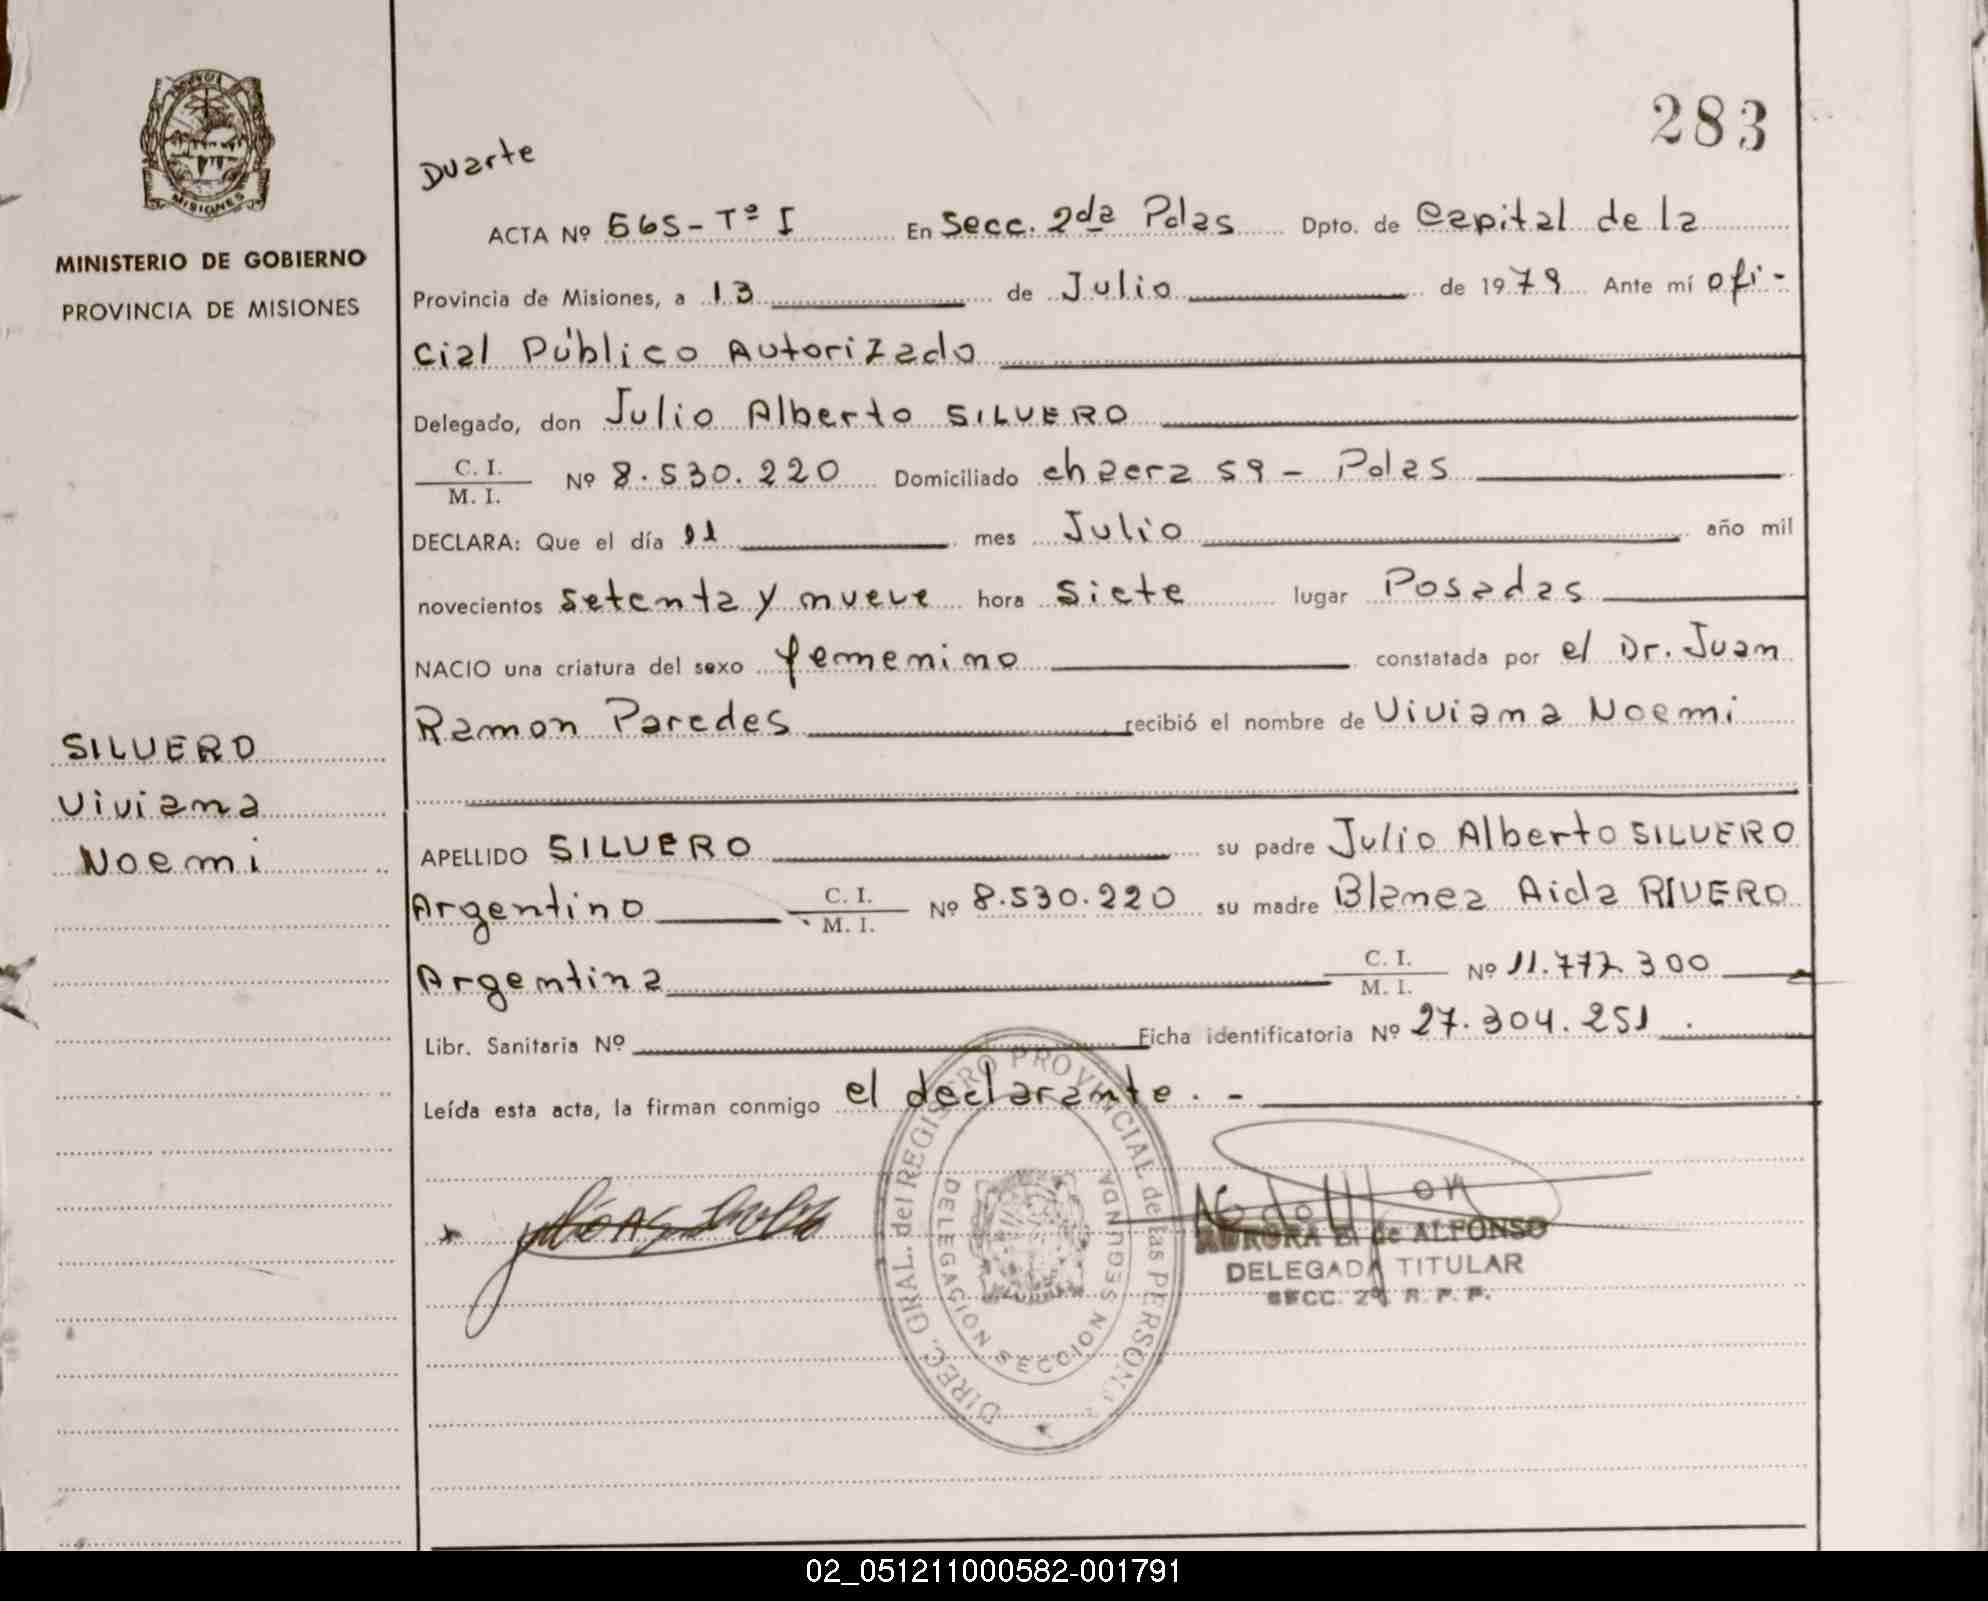 283
Duarte
MISIONES
MINISTERIO DE GOBIERNO
PROVINCIA DE MISIONES
ACTA Nº 565-Tº I En Secc. 2da Pdas Dpto. de Capital de la
Provincia de Misiones, a 13 de Julio de 1979 Ante mí ofi-
cial Público Autorizado
Delegado, don Julio Alberto SILVERO
C. I.
M. I. Nº 8.530.220 Domiciliado chacra 59 - Pdas
DECLARA: Que el día 11 mes Julio año mil
novecientos setenta y nueve hora siete lugar Posadas
NACIO una criatura del sexo femenino constatada por el Dr. Juan
Ramon Paredes recibió el nombre de Viviana Noemi
SILVERO
Viviana
Noemi
APELLIDO SILVERO su padre Julio Alberto SILVERO
Argentino C. I.
M. I. Nº 8.530.220 su madre Blanca Aida RIVERO
Argentina C. I.
M. I. Nº 11.772.300
Libr. Sanitaria Nº Ficha identificatoria Nº 27.304.251
Leída esta acta, la firman conmigo el declarante. -
DIREC. GRAL. del REGISTRO PROVINCIAL de las PERSONAS
DELEGACION SECCION SEGUNDA
AURORA de ALFONSO
DELEGADA TITULAR
SECC. 2ª R. P. P.
02_051211000582-001791